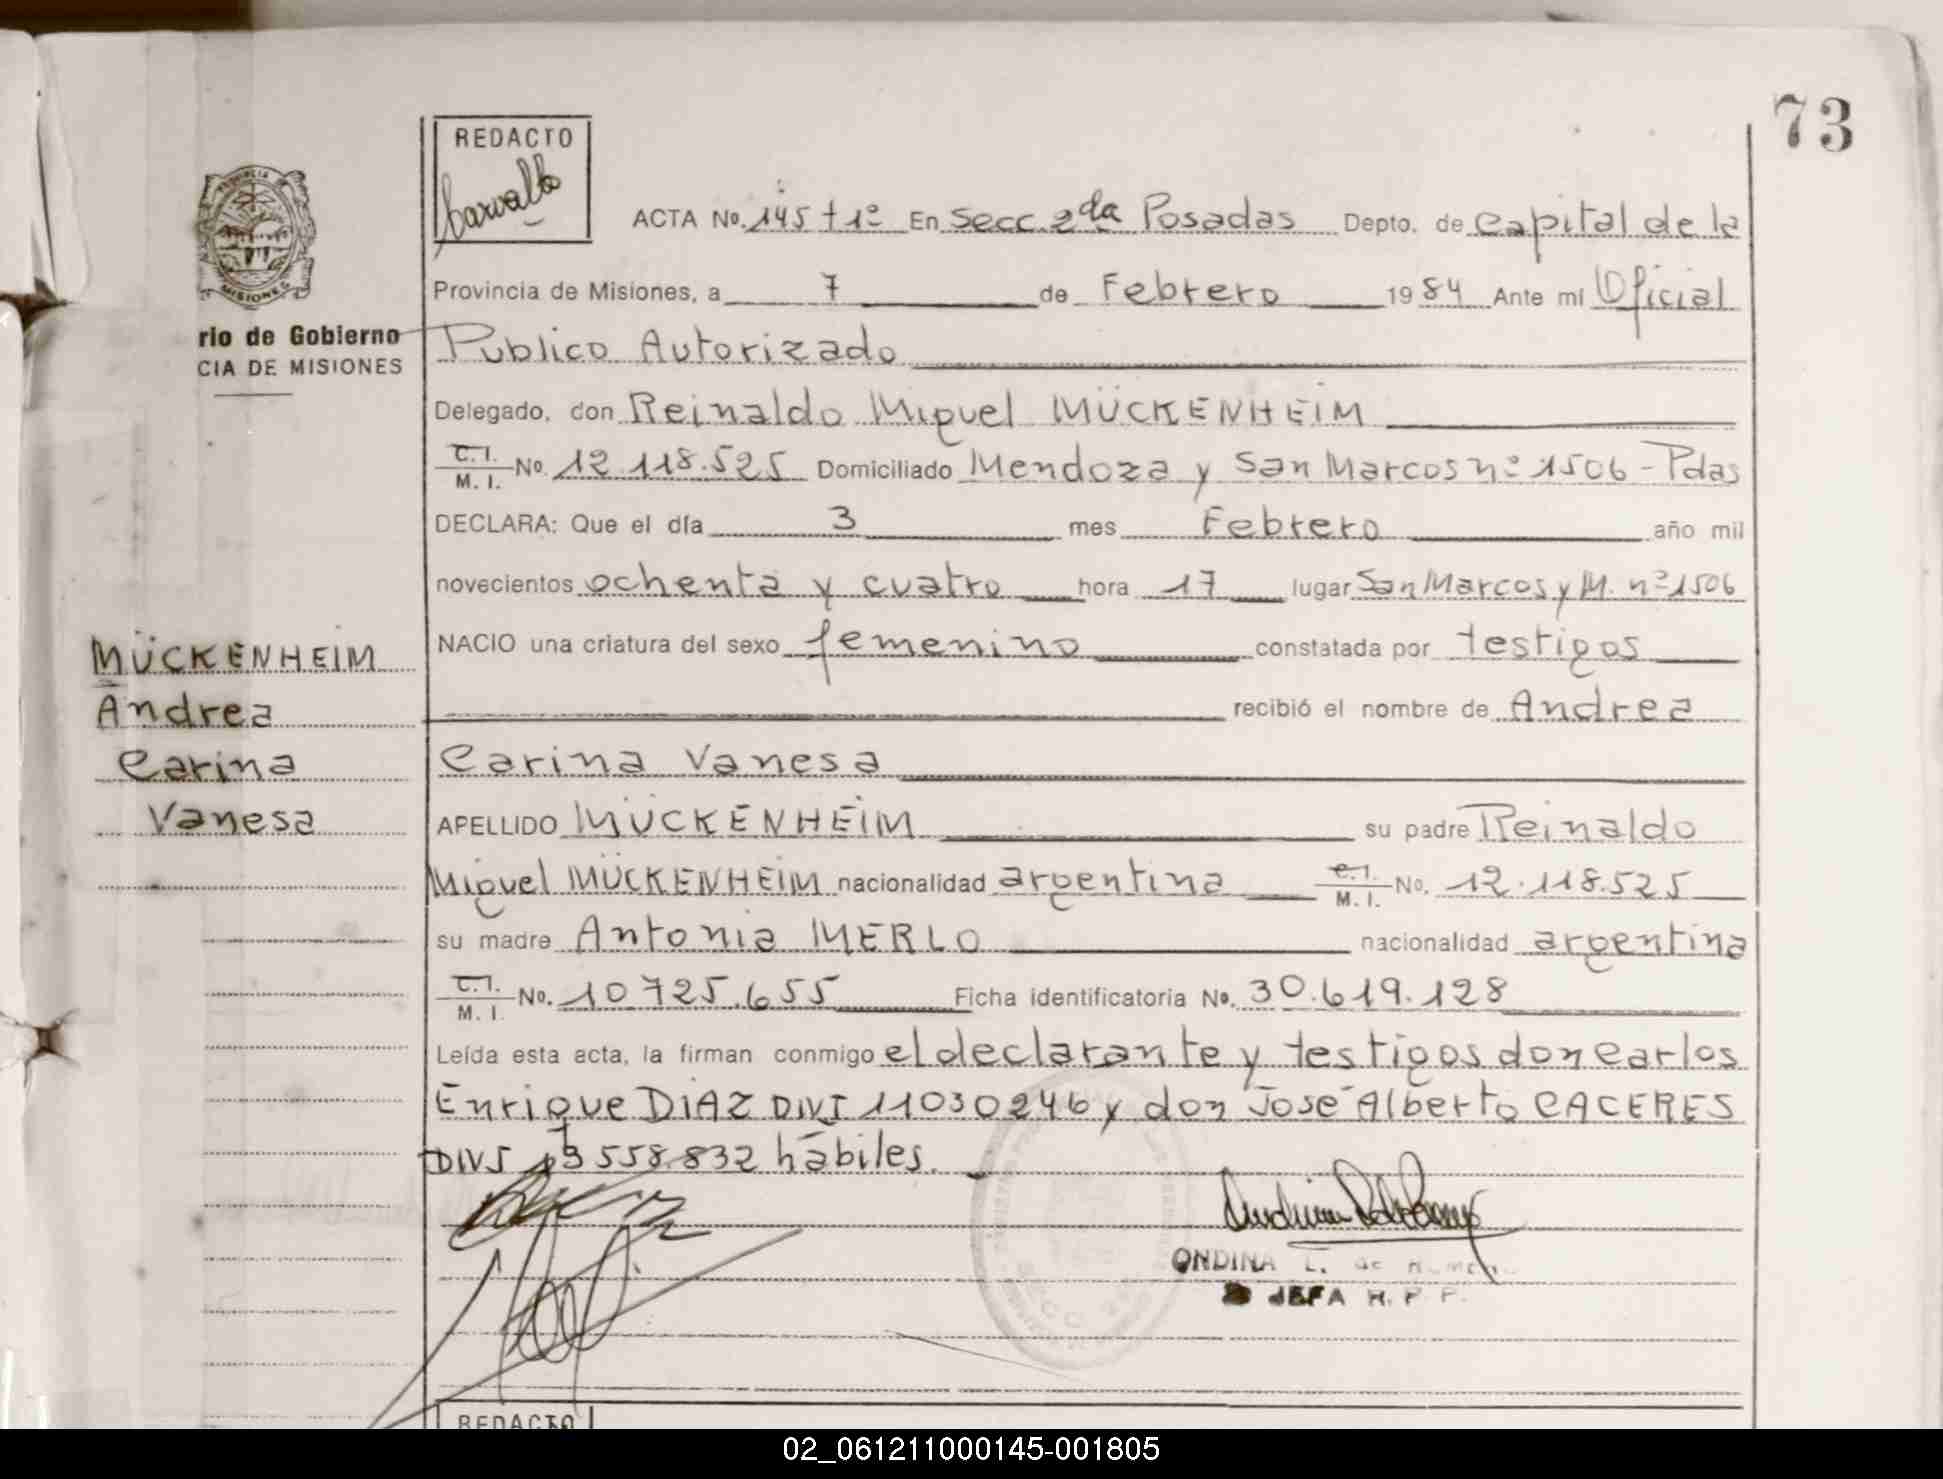 73
REDACTO
Carvallo
ACTA No. 145 t 1º En Secc. 2da Posadas Depto. de Capital de la
Provincia de Misiones, a 7 de Febrero 1984 Ante mi Oficial
PROVINCIA DE
MISIONES
rio de Gobierno
CIA DE MISIONES
Publico Autorizado
Delegado, don Reinaldo Miguel MÜCKENHEIM
C. I. M. I. No. 12.118.525 Domiciliado Mendoza y San Marcos nº 1506 - Pdas
DECLARA: Que el día 3 mes Febrero año mil
novecientos ochenta y cuatro hora 17 lugar San Marcos y M. nº 1506
NACIO una criatura del sexo femenino constatada por testigos
recibió el nombre de Andrea
Carina Vanesa
MÜCKENHEIM
Andrea
Carina
Vanesa
APELLIDO MÜCKENHEIM su padre Reinaldo
Miguel MÜCKENHEIM nacionalidad argentina C. I. M. I. No. 12.118.525
su madre Antonia MERLO nacionalidad argentina
C. I. M. I. No. 10725.655 Ficha identificatoria No. 30.619.128
Leída esta acta, la firman conmigo el declarante y testigos don Carlos
Enrique DIAZ 11030246 y don José Alberto CACERES
13558.832 hábiles.
ONDINA L. de
JEFA R. P. P.
REDACTO
02_061211000145-001805